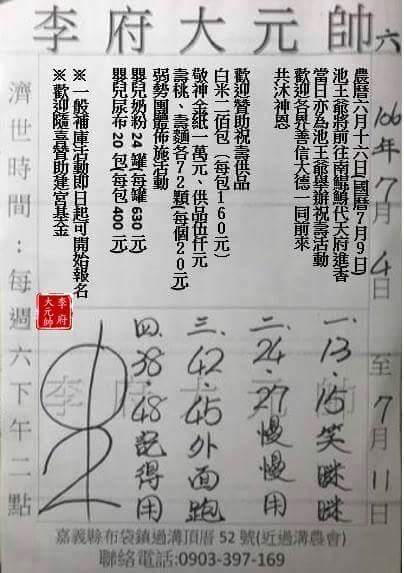 李府大元帥 六
106年7月4日至7月11日
農曆六月十六日(國曆7月9日)
池王爺將前往南鯤鯓代天府進香
當日亦為池王爺舉辦祝壽活動
歡迎各界善信大德一同前來
共沐神恩
歡迎贊助祝壽供品
白米二佰包(每包160元)
敬神金紙一萬元、供品伍仟元
壽桃、壽麵各72顆(每個20元)
弱勢團體佈施活動
嬰兒奶粉24罐(每罐630元)
嬰兒尿布20包(每包400元)
※一般補庫活動即日起可開始報名
※歡迎隨喜贊助建宮基金
濟世時間:每週六下午二點
李府大元帥
一、13.15笑瞇瞇
二、24.27慢慢用
三、42.45外面跑
四、38.48記得用
李府大元帥
嘉義縣布袋鎮過溝頂厝52號(近過溝農會)
聯絡電話:0903-397-169